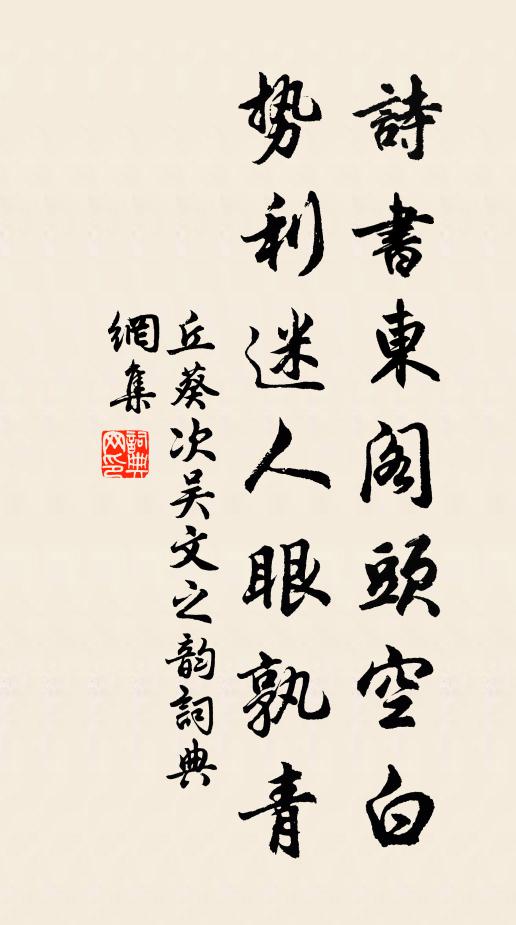 詩書東阁頭空白
势利迷人眼孰青
丘葵次吴文之韵詞典
網集
詞典网印